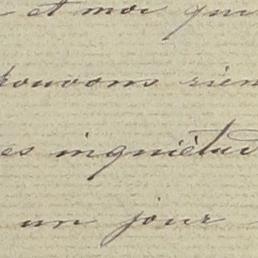 et moi qui
pouvons rien
es inquiétud
un jour